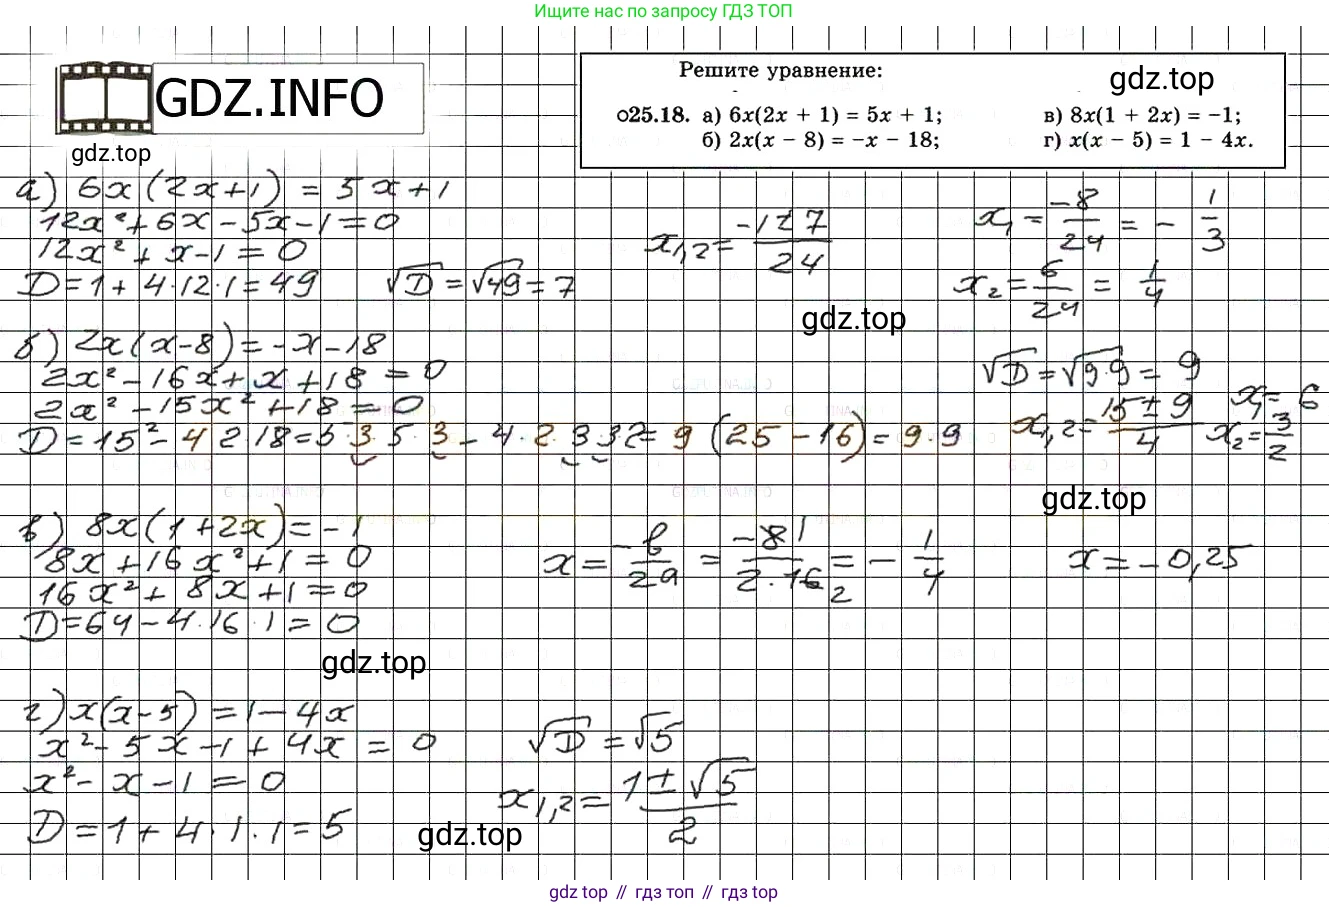 Ищите нас по запросу ГДЗ ТОП
GDZ.INFO
gdz.top
Решите уравнение:
gdz.top
о25.18. а) 6x(2x + 1) = 5x + 1;
в) 8x(1 + 2x) = −1;
б) 2x(x − 8) = −x − 18;
г) x(x − 5) = 1 − 4x.
а) 6x(2x+1) = 5x+1
12x²+6x−5x−1=0
12x²+x−1=0
D=1+4·12·1=49
√D=√49=7
x₁,₂=(−1±7)/24
x₁=−8/24=−1/3
x₂=6/24=1/4
gdz.top
б) 2x(x−8)=−x−18
2x²−16x+x+18=0
2x²−15x²+18=0
D=15²−4 2·18=5·3·5·3−4·2·3 3 2=9(25−16)=9·9
√D=√9·9=9
x₁,₂=(15±9)/4
x₁=6
x₂=3/2
gdz.top
в) 8x(1+2x)=−1
8x+16x²+1=0
16x²+8x+1=0
D=64−4·16·1=0
x=−b/2a=−8 1/2·16 2=−1/4
x=−0,25
gdz.top
г) x(x−5)=1−4x
x²−5x−1+4x=0
x²−x−1=0
D=1+4·1·1=5
√D=√5
x₁,₂=(1±√5)/2
gdz.top
gdz top // гдз топ // gdz top